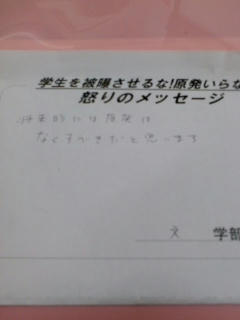 学生を被曝させるな!原発いらな
怒りのメッセージ
将来的には原発は
なくすべきだと思います
文 学部